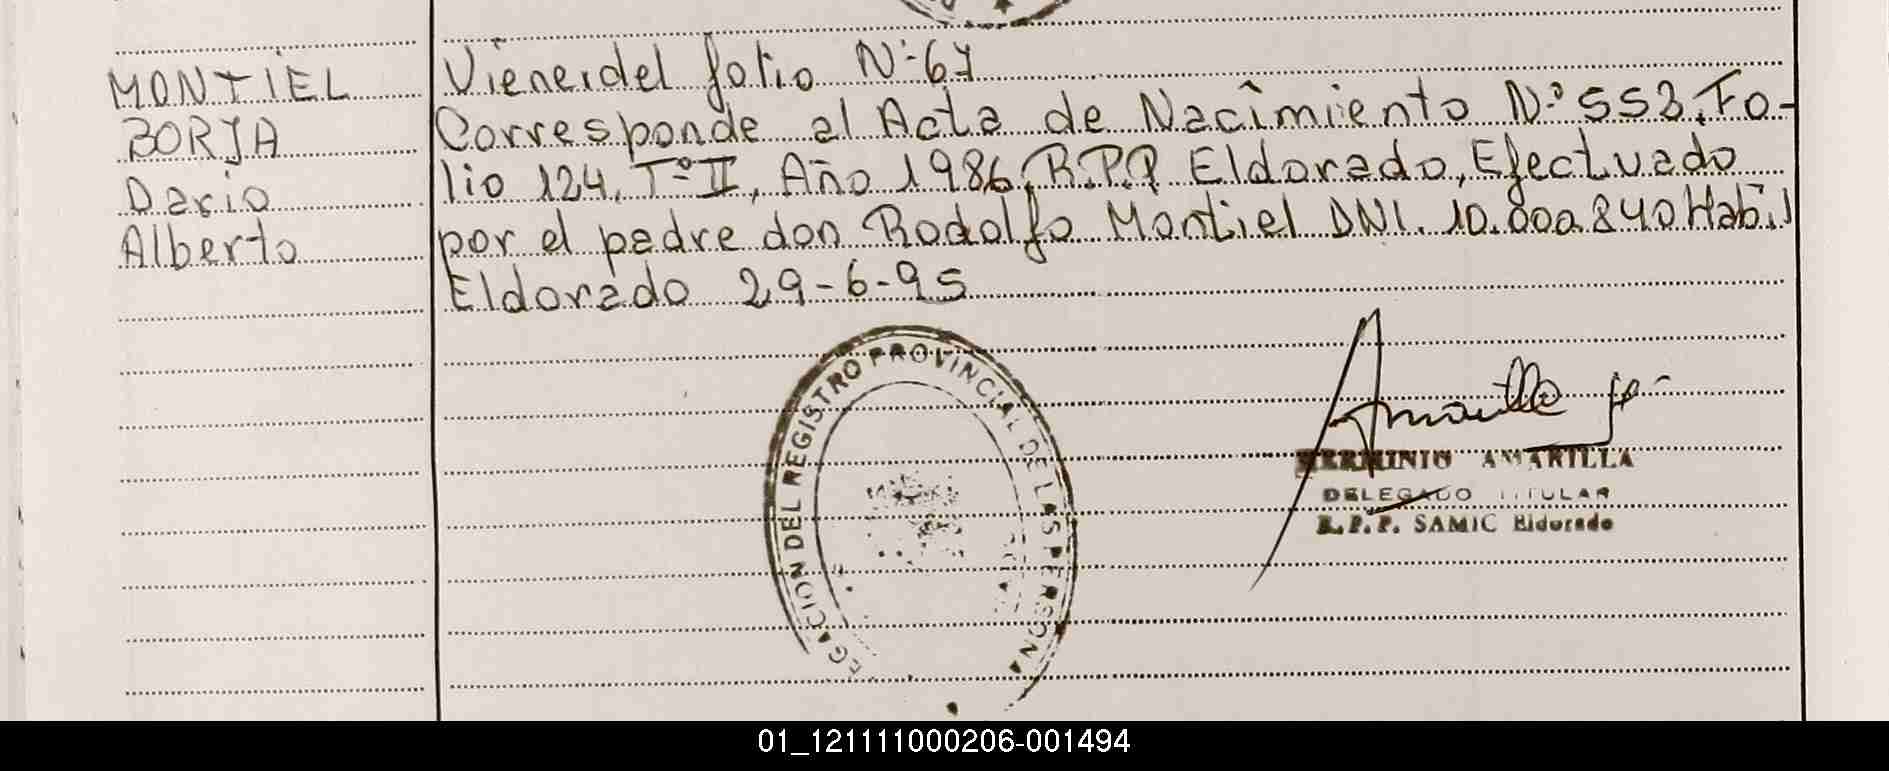 MONTIEL
BORJA
Dario
Alberto
Viene del folio Nº 67
Corresponde al Acta de Nacimiento Nº 553, Fo-
lio 124, Tº II, Año 1986, R.P.P. Eldorado, Efectuado
por el padre don Rodolfo Montiel DNI. 10.800.840 Habil
Eldorado 29-6-95
EGACION DEL REGISTRO PROVINCIAL DE LAS PERSONA
Amarilla
HERMINIO AMARILLA
DELEGADO TITULAR
R.P.P. SAMIC Eldorado
01_121111000206-001494